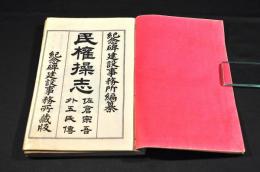 紀念碑建設事務所編纂
民權操志
佐倉宗吾
外五氏傳
紀念碑建設事務所藏版